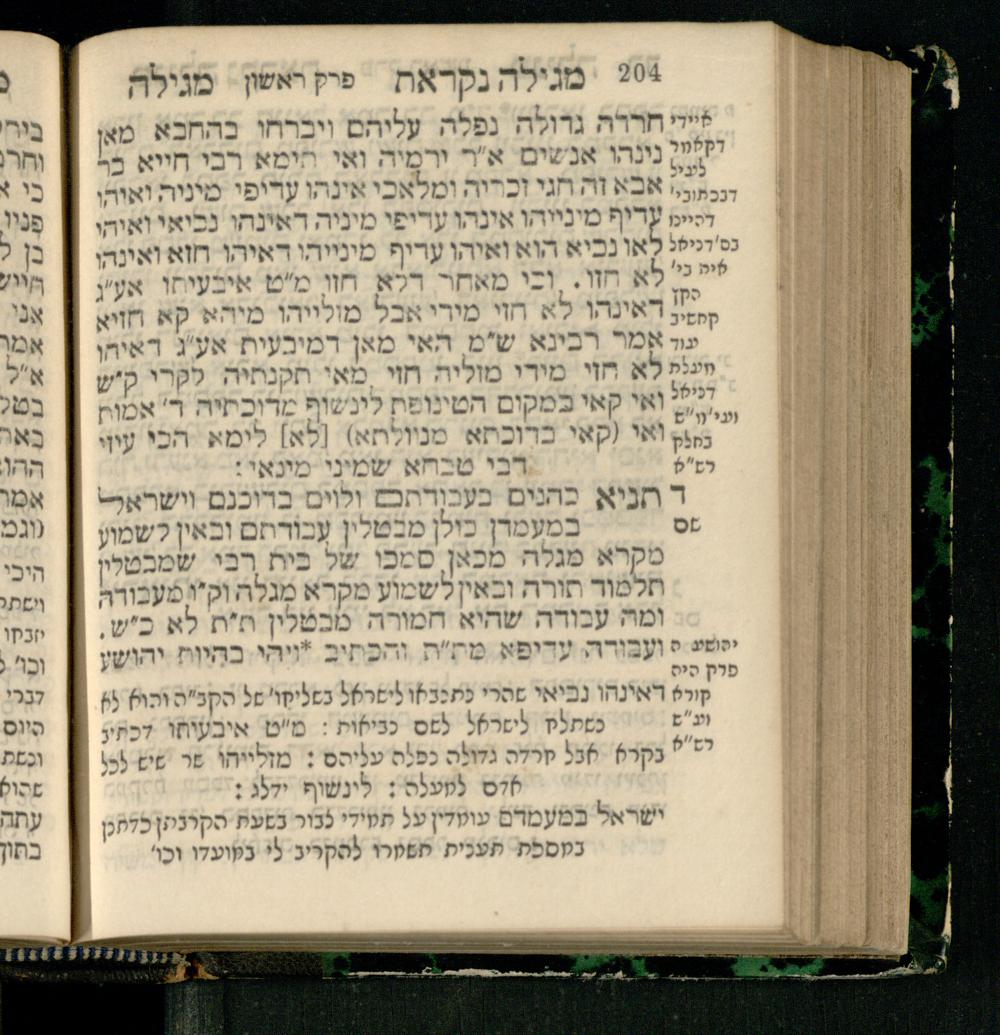 204 מגילה נקראת פרק ראשון מגילה
חרדה גדולה נפלה עליהם ויברחו בהחבא מאן
נינהו אנשים א״ר ירמיה ואי תימא רבי חייא בר
אבא זה חגי זכריה ומלאכי אינהו עדיפי מיניה ואיהו
עדיף מינייהו אינהו עדיפי מיניה דאינהו נביאי ואיהו
לאו נביא הוא ואיהו עדיף מינייהו דאיהו חזא ואינהו
לא חזו. וכי מאחר דלא חזו מ״ט איבעיתו אע״ג
דאינהו לא חזי מידי אבל מזלייהו מיהא קא חזיא
אמר רבינא ש״מ האי מאן דמיבעית אע״ג דאיהו
לא חזי מידי מזליה חזי מאי תקנתיה לקרי ק״ש
ואי קאי במקום הטינופת לינשוף מדוכתיה ד׳ אמות
ואי (קאי בדוכתא מניולתא) [לא] לימא הכי עיזי
דבי טבחא שמיני מינאי:
תניא כהנים בעבודתם ולוים בדוכנם וישראל
במעמדן כולן מבטלין עבודתם ובאין לשמוע
מקרא מגלה מכאן סמכו של בית רבי שמבטלין
תלמוד תורה ובאין לשמוע מקרא מגלה וק״ו מעבודה
ומה עבודה שהיא חמורה מבטלין ת״ת לא כ״ש.
ועבודה עדיפא מת״ת והכתיב *ויהי בהיות יהושע
דאינהו נביאי שהרי נתנבאו לישראל בשליחו׳ של הקב״ה והוא לא
נשתלח לישראל לשם נביאות: מ״ט איבעיתו דכתיב
בקרא אבל חרדה גדולה נפלה עליהם: מזלייהו שר שיש לכל
אדם למעלה: לינשוף ידלג:
ישראל במעמדם עומדין על תמידי צבור בשעת הקרבתן כדתנן
במסכת תענית תשמרו להקריב לי במועדו וכו׳
איידי
דקאמר
לעיל
דבכתובי׳
דהיינו
בס׳ דניאל
איה בי׳
הקן
קחשיב
עוד
מגלת
דניאל
ועי׳ ווי״ש
בחלק
רש״א
ד
שם
יהושע ה
פרק היה
קורא
וע״ש
רש״א